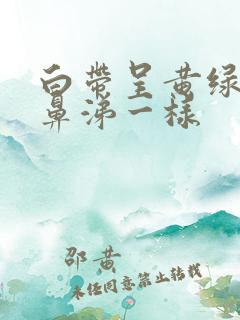 白带呈黄绿
鼻涕一样
邵黄
未经同意禁止转载